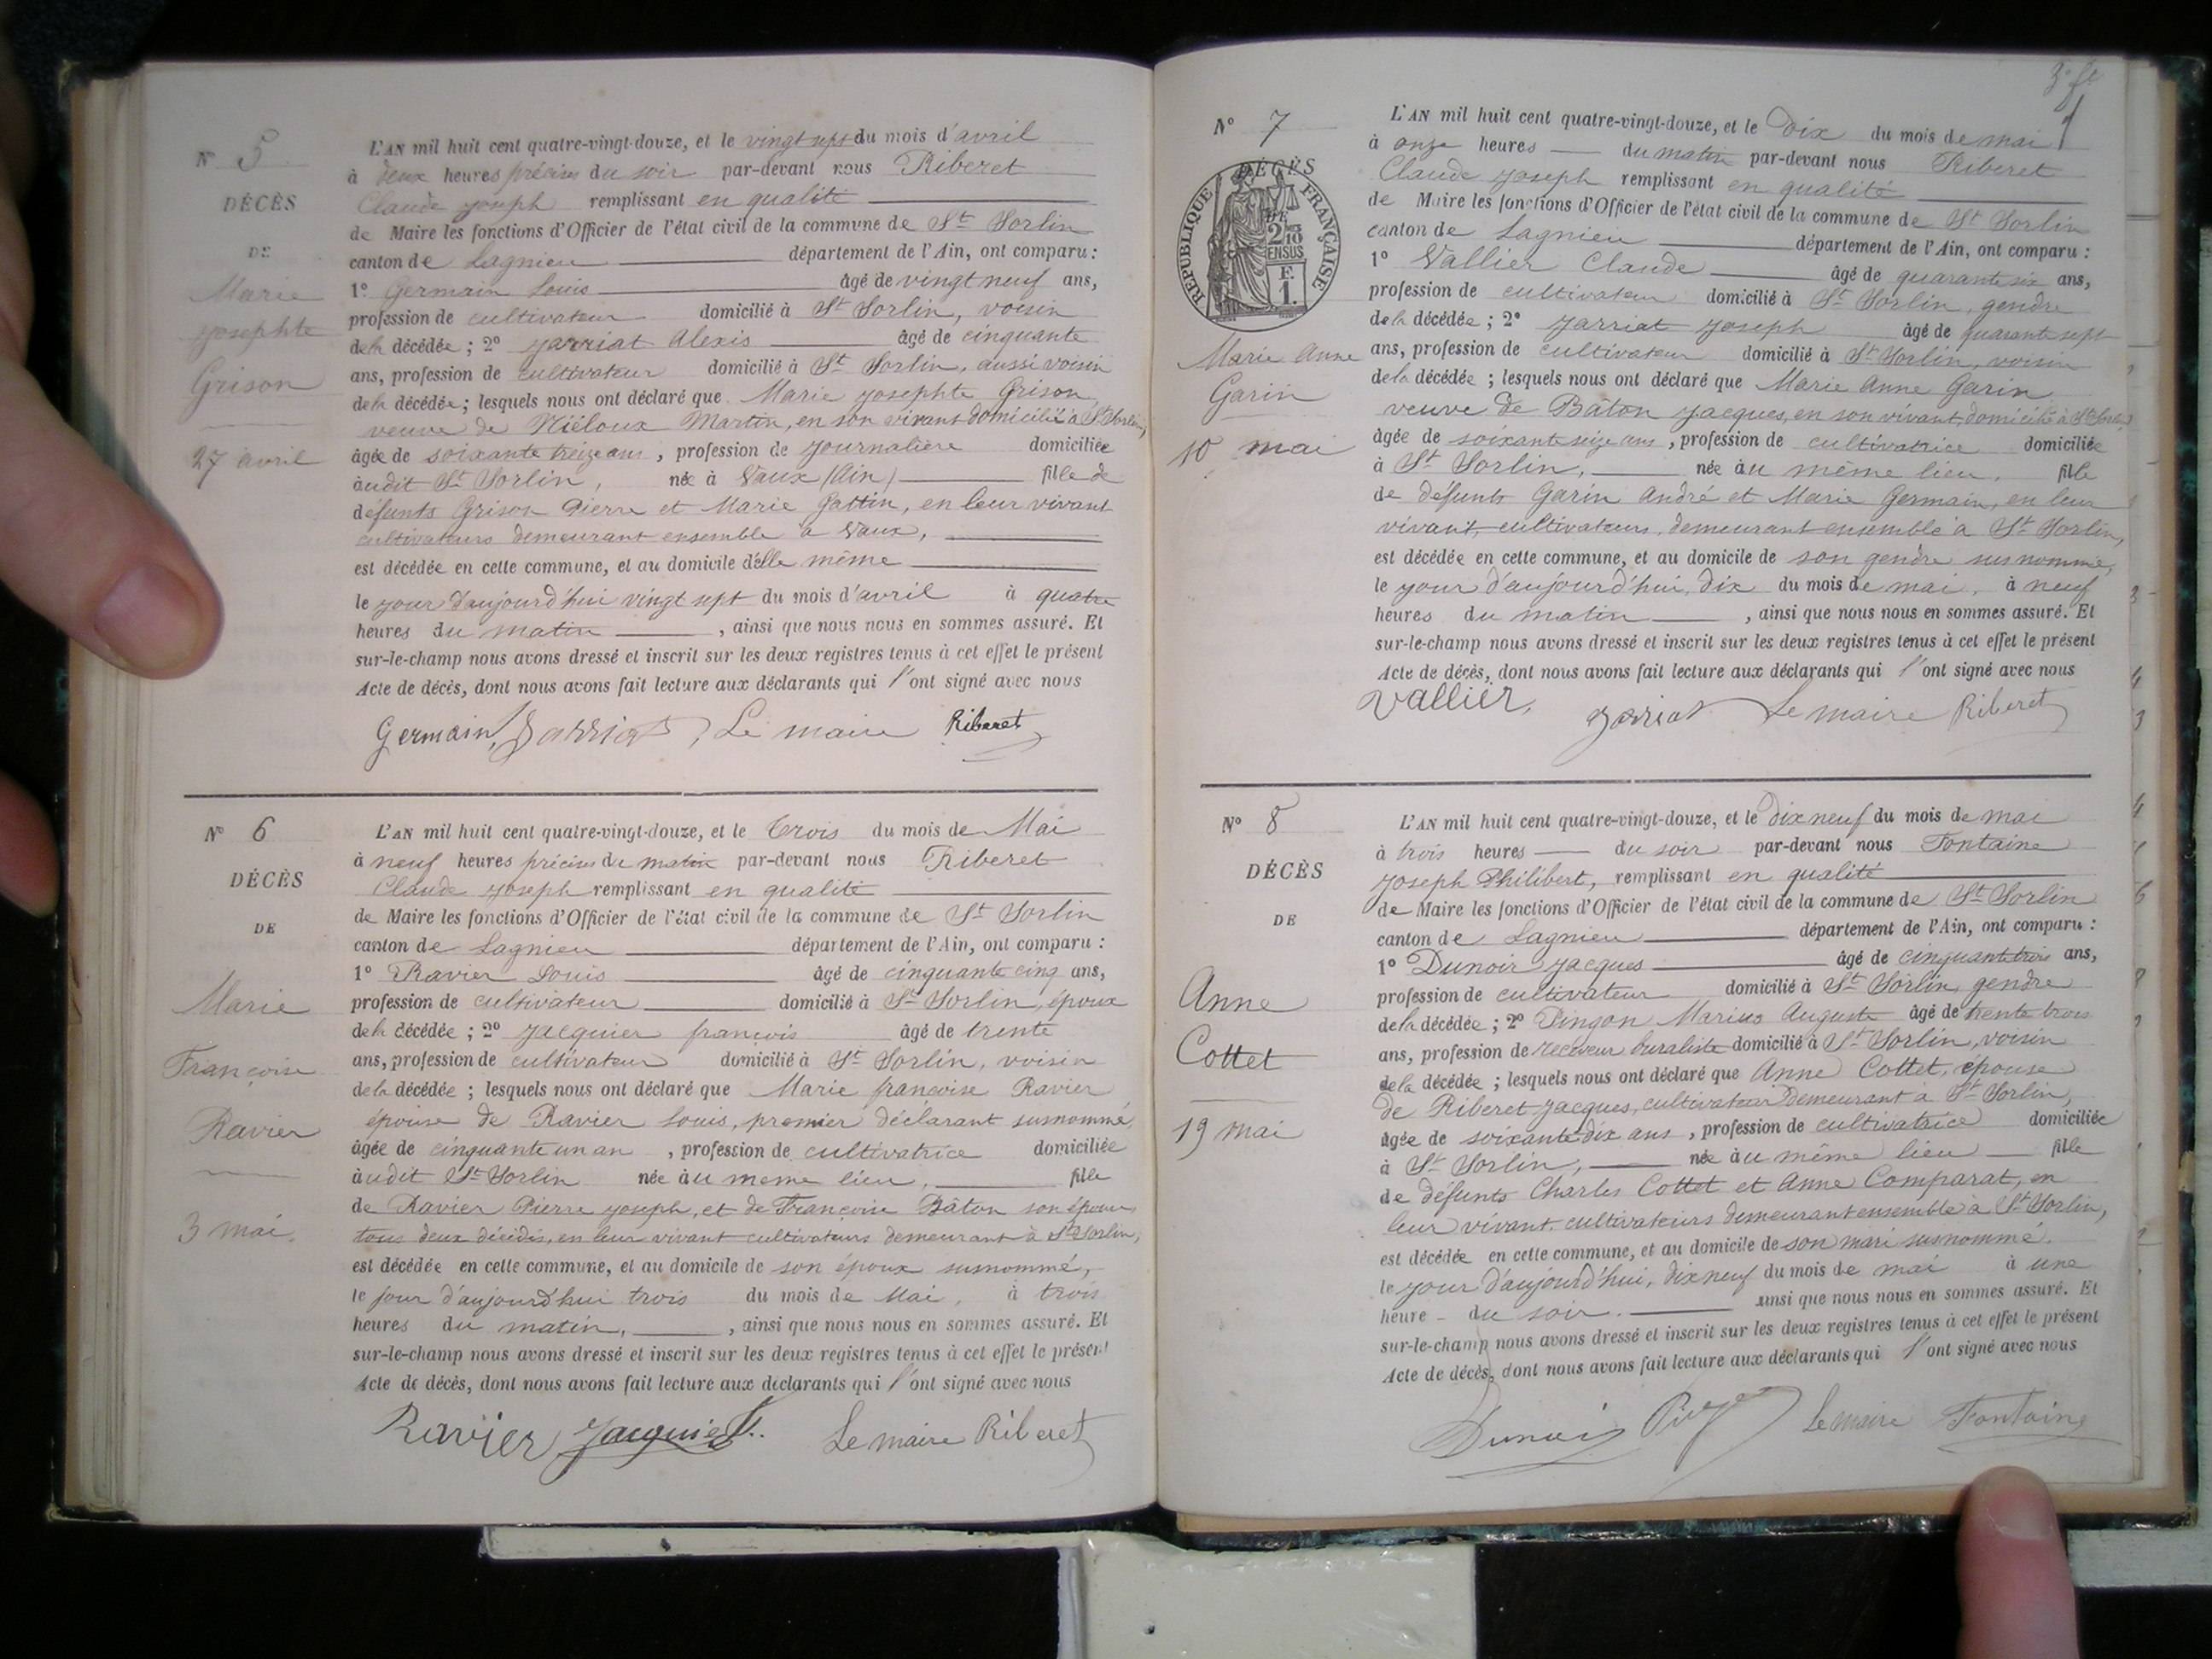 N° 5
DÉCÈS
DE
Marie
Josephte
Grison
27 avril
L'AN mil huit cent quatre-vingt-douze, et le vingt sept du mois d'avril
à deux heures précises du soir par-devant nous Riberet
Claude Joseph remplissant en qualité
de Maire les fonctions d'Officier de l'état civil de la commune de St Sorlin
canton de Lagnieu département de l'Ain, ont comparu :
1° Germain Louis âgé de vingt neuf ans,
profession de cultivateur domicilié à St Sorlin, voisin
de la décédée ; 2° Jarriat Alexis âgé de cinquante
ans, profession de cultivateur domicilié à St Sorlin, aussi voisin
de la décédée ; lesquels nous ont déclaré que Marie Josephte Grison,
veuve de Martin, en son vivant domicilié à St Sorlin,
âgée de soixante treize ans, profession de journalière domiciliée
àudit St Sorlin, née à Vaux (Ain) fille de
défunts Grison Pierre et Marie Gottin, en leur vivant
cultivateurs demeurant ensemble à Vaux,
est décédée en cette commune, et au domicile d'elle même
le jour d'aujourd'hui vingt sept du mois d'avril à quatre
heures du matin, ainsi que nous nous en sommes assuré. Et
sur-le-champ nous avons dressé et inscrit sur les deux registres tenus à cet effet le présent
Acte de décès, dont nous avons fait lecture aux déclarants qui l'ont signé avec nous
Germain, Jarriat, Le maire Riberet
N° 6
DÉCÈS
DE
Marie
Françoise
Ravier
3 mai.
L'AN mil huit cent quatre-vingt-douze, et le trois du mois de Mai
à neuf heures précises du matin par-devant nous Riberet
Claude Joseph remplissant en qualité
de Maire les fonctions d'Officier de l'état civil de la commune de St Sorlin
canton de Lagnieu département de l'Ain, ont comparu :
1° Ravier Louis âgé de cinquante cinq ans,
profession de cultivateur domicilié à St Sorlin, époux
de la décédée ; 2° Jacquier françois âgé de trente
ans, profession de cultivateur domicilié à St Sorlin, voisin
de la décédée ; lesquels nous ont déclaré que Marie françoise Ravier
épouse de Ravier Louis, premier déclarant susnommé,
âgée de cinquante un an, profession de cultivatrice domiciliée
àudit St Sorlin née àu meme lieu, fille
de Ravier Pierre Joseph, et de Françoise Bâton son épouse
tous deux décédés, en leur vivant cultivateurs demeurant à St Sorlin,
est décédée en cette commune, et au domicile de son époux susnommé,
le jour d'aujourd'hui trois du mois de Mai, à trois
heures du matin, ainsi que nous nous en sommes assuré. Et
sur-le-champ nous avons dressé et inscrit sur les deux registres tenus à cet effet le présent
Acte de décès, dont nous avons fait lecture aux déclarants qui l'ont signé avec nous
Ravier Jacquier Le maire Riberet
N° 7
DÉCÈS
DE
RÉPUBLIQUE FRANÇAISE
2/10 EN SUS
F. 1.
Marie Anne
Garin
10 mai
L'AN mil huit cent quatre-vingt-douze, et le Dix du mois de mai
à onze heures du matin par-devant nous Riberet
Claude Joseph remplissant en qualité
de Maire les fonctions d'Officier de l'état civil de la commune de St Sorlin
canton de Lagnieu département de l'Ain, ont comparu :
1° Vallier Claude âgé de quarante six ans,
profession de cultivateur domicilié à St Sorlin, gendre
de la décédée ; 2° Jarriat Joseph âgé de quarante sept
ans, profession de cultivateur domicilié à St Sorlin, voisin
de la décédée ; lesquels nous ont déclaré que Marie Anne Garin
veuve de Baton Jacques, en son vivant domicilié à St Sorlin
âgée de soixante seize ans, profession de cultivatrice domiciliée
à St Sorlin, née àu même lieu, fille
de défunts Garin André et Marie Germain, en leur
vivant, cultivateurs demeurant ensemble à St Sorlin,
est décédée en cette commune, et au domicile de son gendre susnommé,
le jour d'aujourd'hui, dix du mois de mai, à neuf
heures du matin, ainsi que nous nous en sommes assuré. Et
sur-le-champ nous avons dressé et inscrit sur les deux registres tenus à cet effet le présent
Acte de décès, dont nous avons fait lecture aux déclarants qui l'ont signé avec nous
Vallier, Jarriat Le maire Riberet
N° 8
DÉCÈS
DE
Anne
Cottet
19 mai
L'AN mil huit cent quatre-vingt-douze, et le dix neuf du mois de mai
à trois heures du soir par-devant nous Fontaine
Joseph Philibert, remplissant en qualité
de Maire les fonctions d'Officier de l'état civil de la commune de St Sorlin
canton de Lagnieu département de l'Ain, ont comparu :
1° Dunoir Jacques âgé de cinquante trois ans,
profession de cultivateur domicilié à St Sorlin, gendre
de la décédée ; 2° Pingon Marius Auguste âgé de trente trois
ans, profession de receveur buraliste domicilié à St Sorlin, voisin
de la décédée ; lesquels nous ont déclaré que Anne Cottet, épouse
de Riberet Jacques, cultivateur demeurant à St Sorlin,
âgée de soixante dix ans, profession de cultivatrice domiciliée
à St Sorlin, née àu même lieu fille
de défunts Charles Cottet et Anne Comparat, en
leur vivant cultivateurs demeurant ensemble à St Sorlin,
est décédée en cette commune, et au domicile de son mari susnommé.
le jour d'aujourd'hui, dix neuf du mois de mai à une
heure du soir. ainsi que nous nous en sommes assuré. Et
sur-le-champ nous avons dressé et inscrit sur les deux registres tenus à cet effet le présent
Acte de décès, dont nous avons fait lecture aux déclarants qui l'ont signé avec nous
Dunoir Le maire Fontaine